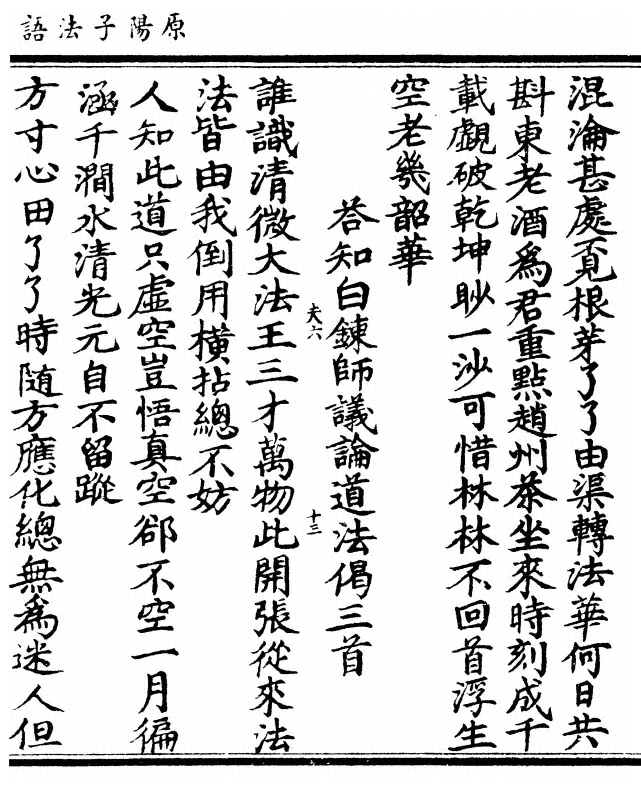 原陽子法語
混淪甚處覔根芽了了由渠轉法華何日共
斟東老酒爲君重點趙州茶坐來時刻成千
載覷破乾坤眇一沙可惜林林不回首浮生
空老幾韶華
荅知白鍊師議論道法偈三首
夫六
十三
誰識清微大法王三才萬物此開張從來法
法皆由我倒用橫拈總不妨
人知此道只虛空豈悟真空卻不空一月徧
涵千澗水清光元自不留蹤
方寸心田了了時随方應化總無爲迷人但